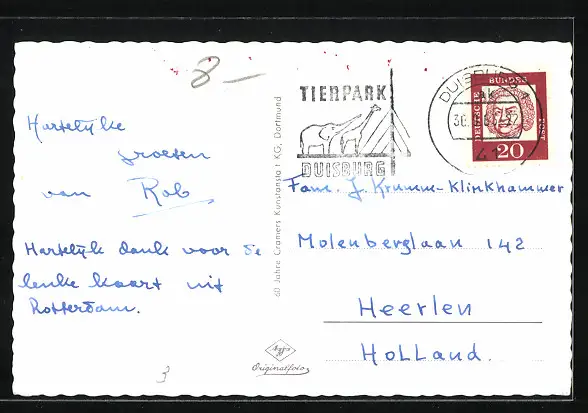 8-
Hartelijke
groeten
van Rob
Hartelijk dank voor de
leuke kaart uit
Rotterdam.
3
60 Jahre Cramers Kunstanstalt KG, Dortmund
TIERPARK
DUISBURG
DUISBURG
DEUTSCHE
BUNDES
POST
20
Fam. J. Krumm-Klinkhammer
Molenberglaan 142
Heerlen
Holland.
Agfa
Originalfoto